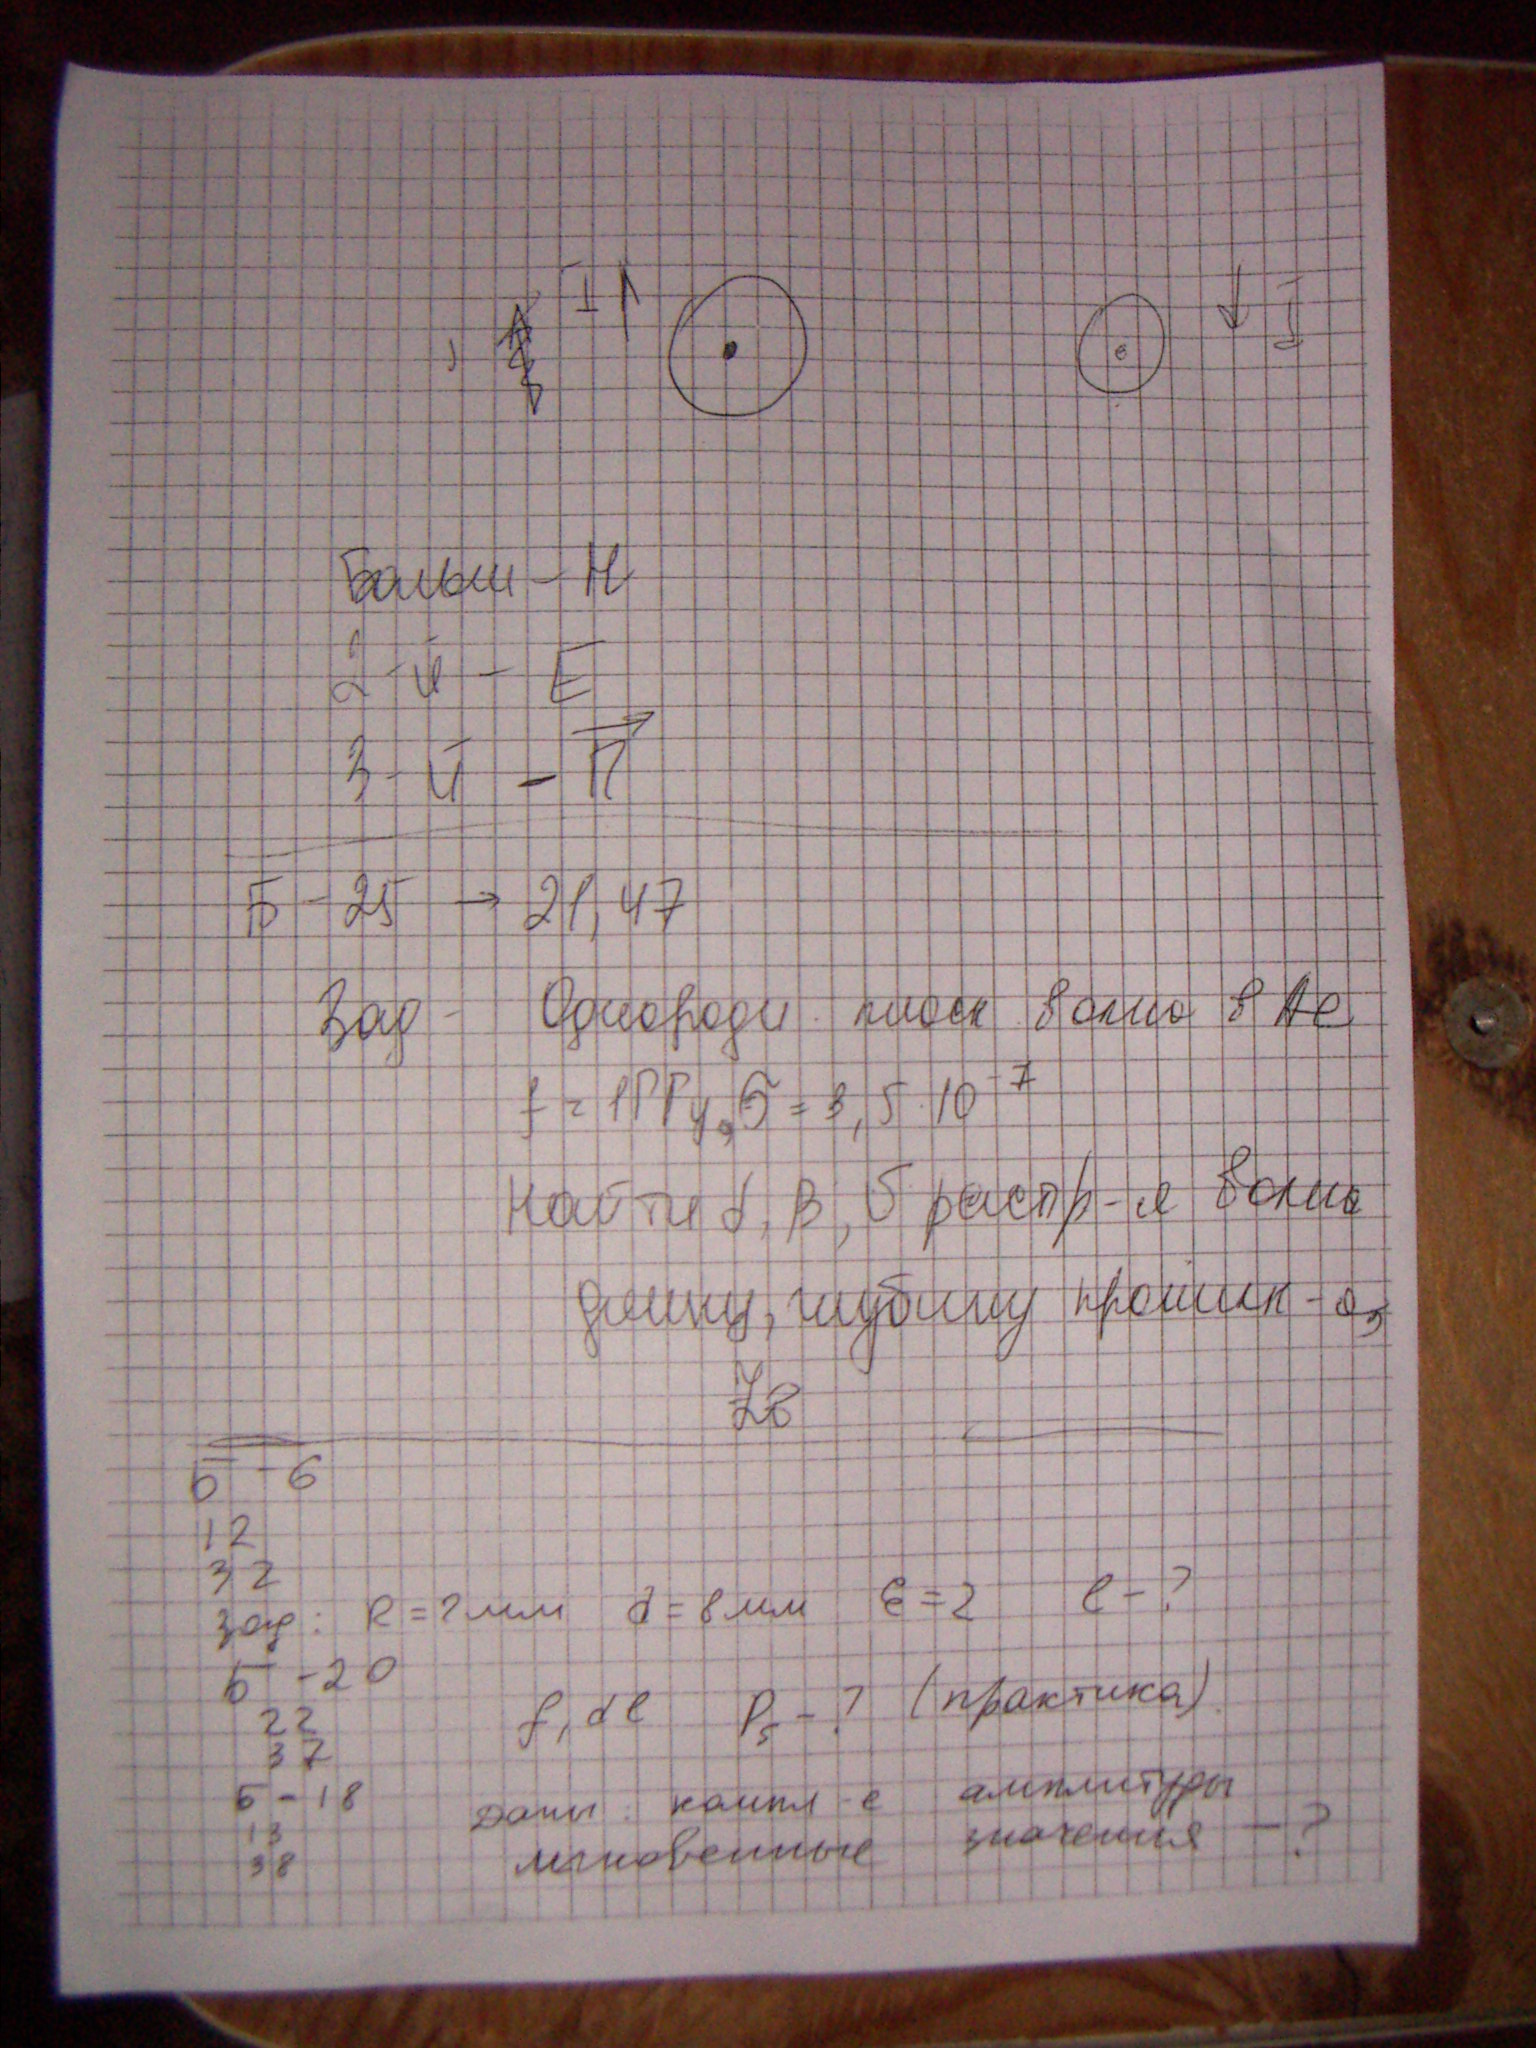 I I
Больш - H
2-й - E
3-й - П
Б - 25 → 21, 47
Зад - Однородн. плоск. волна в Ae
f = 1ГГц, σ = 3,5·10⁻⁷
Найти α, β, распр-я волны
длину, глубину проник-я,
Zв
Б - 6
12
32
Зад: R = 2мм d = 8мм ε = 2 C - ?
Б - 20
22 f, dl P_S - ? (практика).
37
Б - 18 Даны: компл-е амплитуды
13 мгновенные значения - ?
38